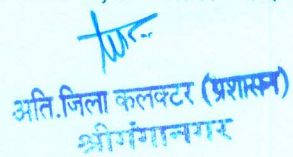 अति.जिला कलक्टर (प्रशासन)
श्रीगंगानगर